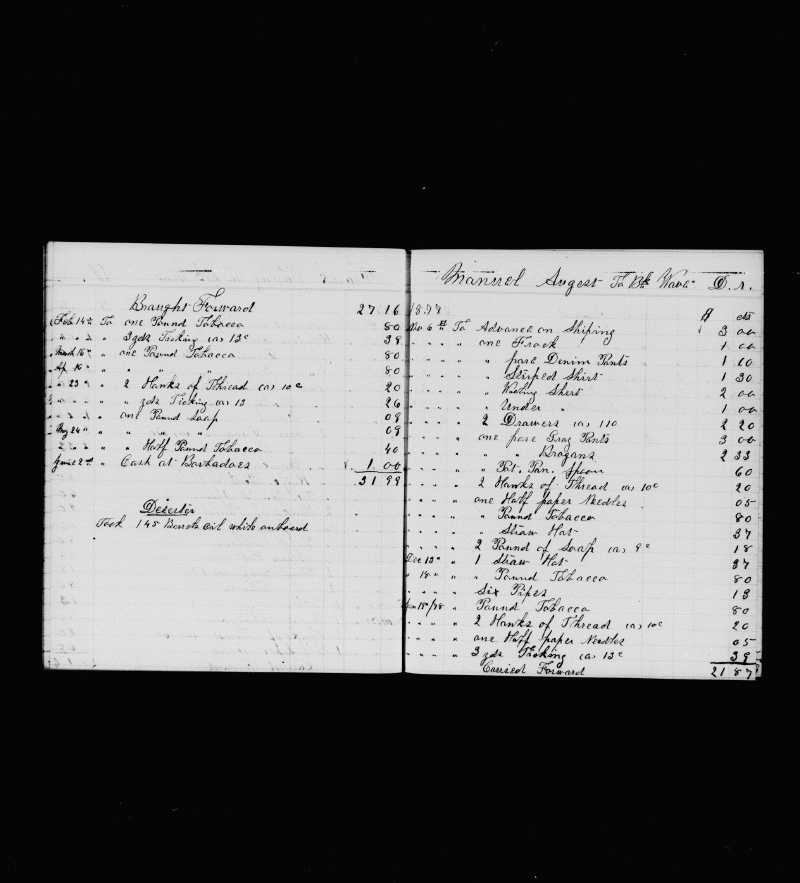 Braught Forward 27.16
Feb 14th To one Pound Tobacco 80
" " " " 3 yds Ticking @ 13c 39
March 16th " one Pound Tobacco 80
Ap. 16" " " " " 80
" 23" " 2 Hanks of Thread @ 10c 20
" " " 2 yds Ticking @ 13 26
" " " " one Pound Soap 09
May 24th " " " " 09
" " " " Half Pound Tobacco 40
June 2nd " Cash at Barbadoes 1.00
31 99
Deserter
Took 145 Barrels Oil while onboard
Manuel Augest To Bk Wave D.r.
1877 $ cts
Nov 6th To Advance on Shiping 3 00
" " " " one Frock 1 00
" " " " " pare Denim Pants 1 10
" " " " " Striped Shirt 1 30
" " " " " Shirt 2 00
" " " " " Under " 1 00
" " " " 2 Drawers @ 110 2 20
" " " " one pare Gray Pants 3 00
" " " " " " Brogans 2 33
" " " " " Pot. Pan. Spoon 60
" " " " 2 Hanks of Thread @ 10c 20
" " " " one Half paper Needles 05
" " " " " Pound Tobacco 80
" " " " " Straw Hat 37
" " " " 2 Pound of Soap @ 9c 18
Dec 13" " 1 Straw Hat 37
" 18" " " Pound Tobacco 80
" " " " Six Pipes 13
Jan 15th/78 " Pound Tobacco 80
" " " " 2 Hanks of Thread @ 10c 20
" " " " one Half paper Needles 05
" " " " 3 yds Ticking @ 13c 39
Carried Forward 21 87